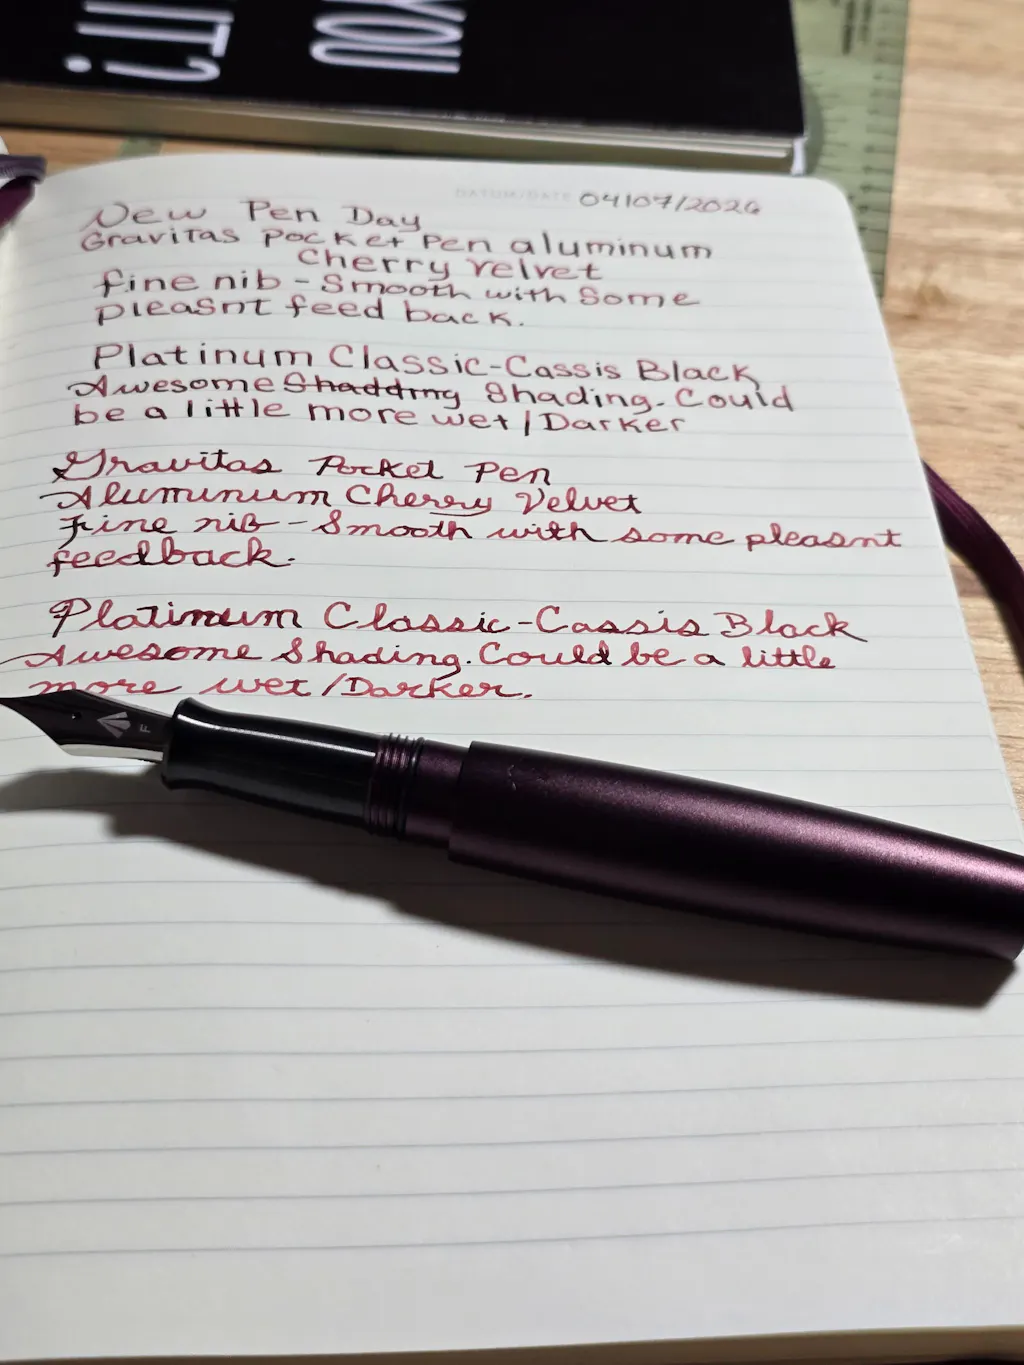 YOU
IT?
DATUM/DATE 04/07/2026
New Pen Day
Gravitas Pocket Pen aluminum
Cherry velvet
fine nib - Smooth with Some
pleasnt feed back.
Platinum Classic-Cassis Black
Awesome Shadding Shading. Could
be a little more wet/Darker
Gravitas Pocket Pen
Aluminum Cherry Velvet
Fine nib - Smooth with some pleasnt
feedback.
Platinum Classic-Cassis Black
Awesome Shading. Could be a little
more wet/Darker.
F